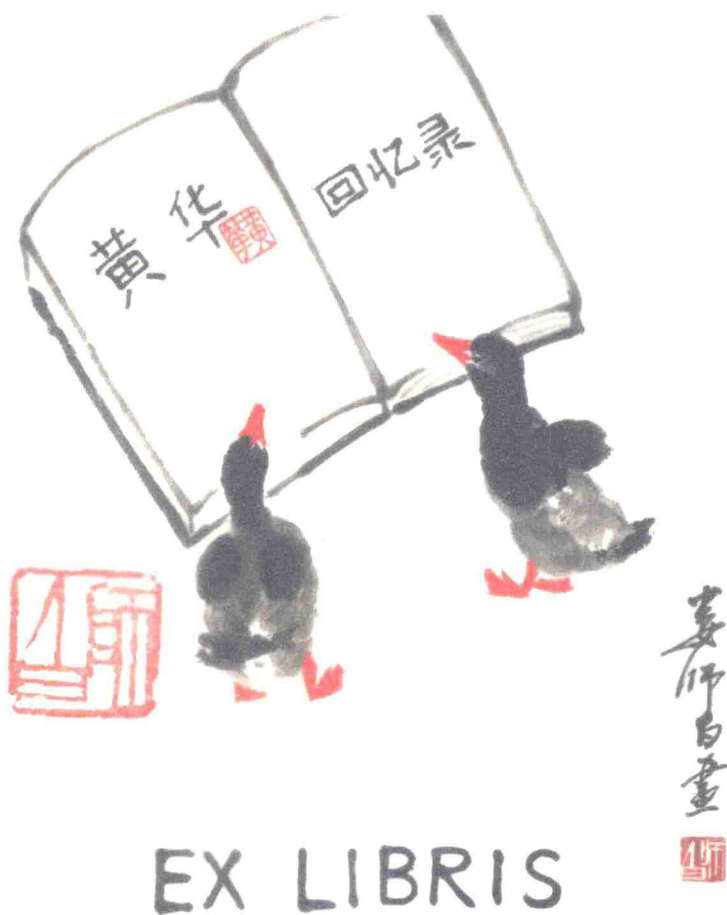 黄华
回忆录
娄师白画
EX LIBRIS